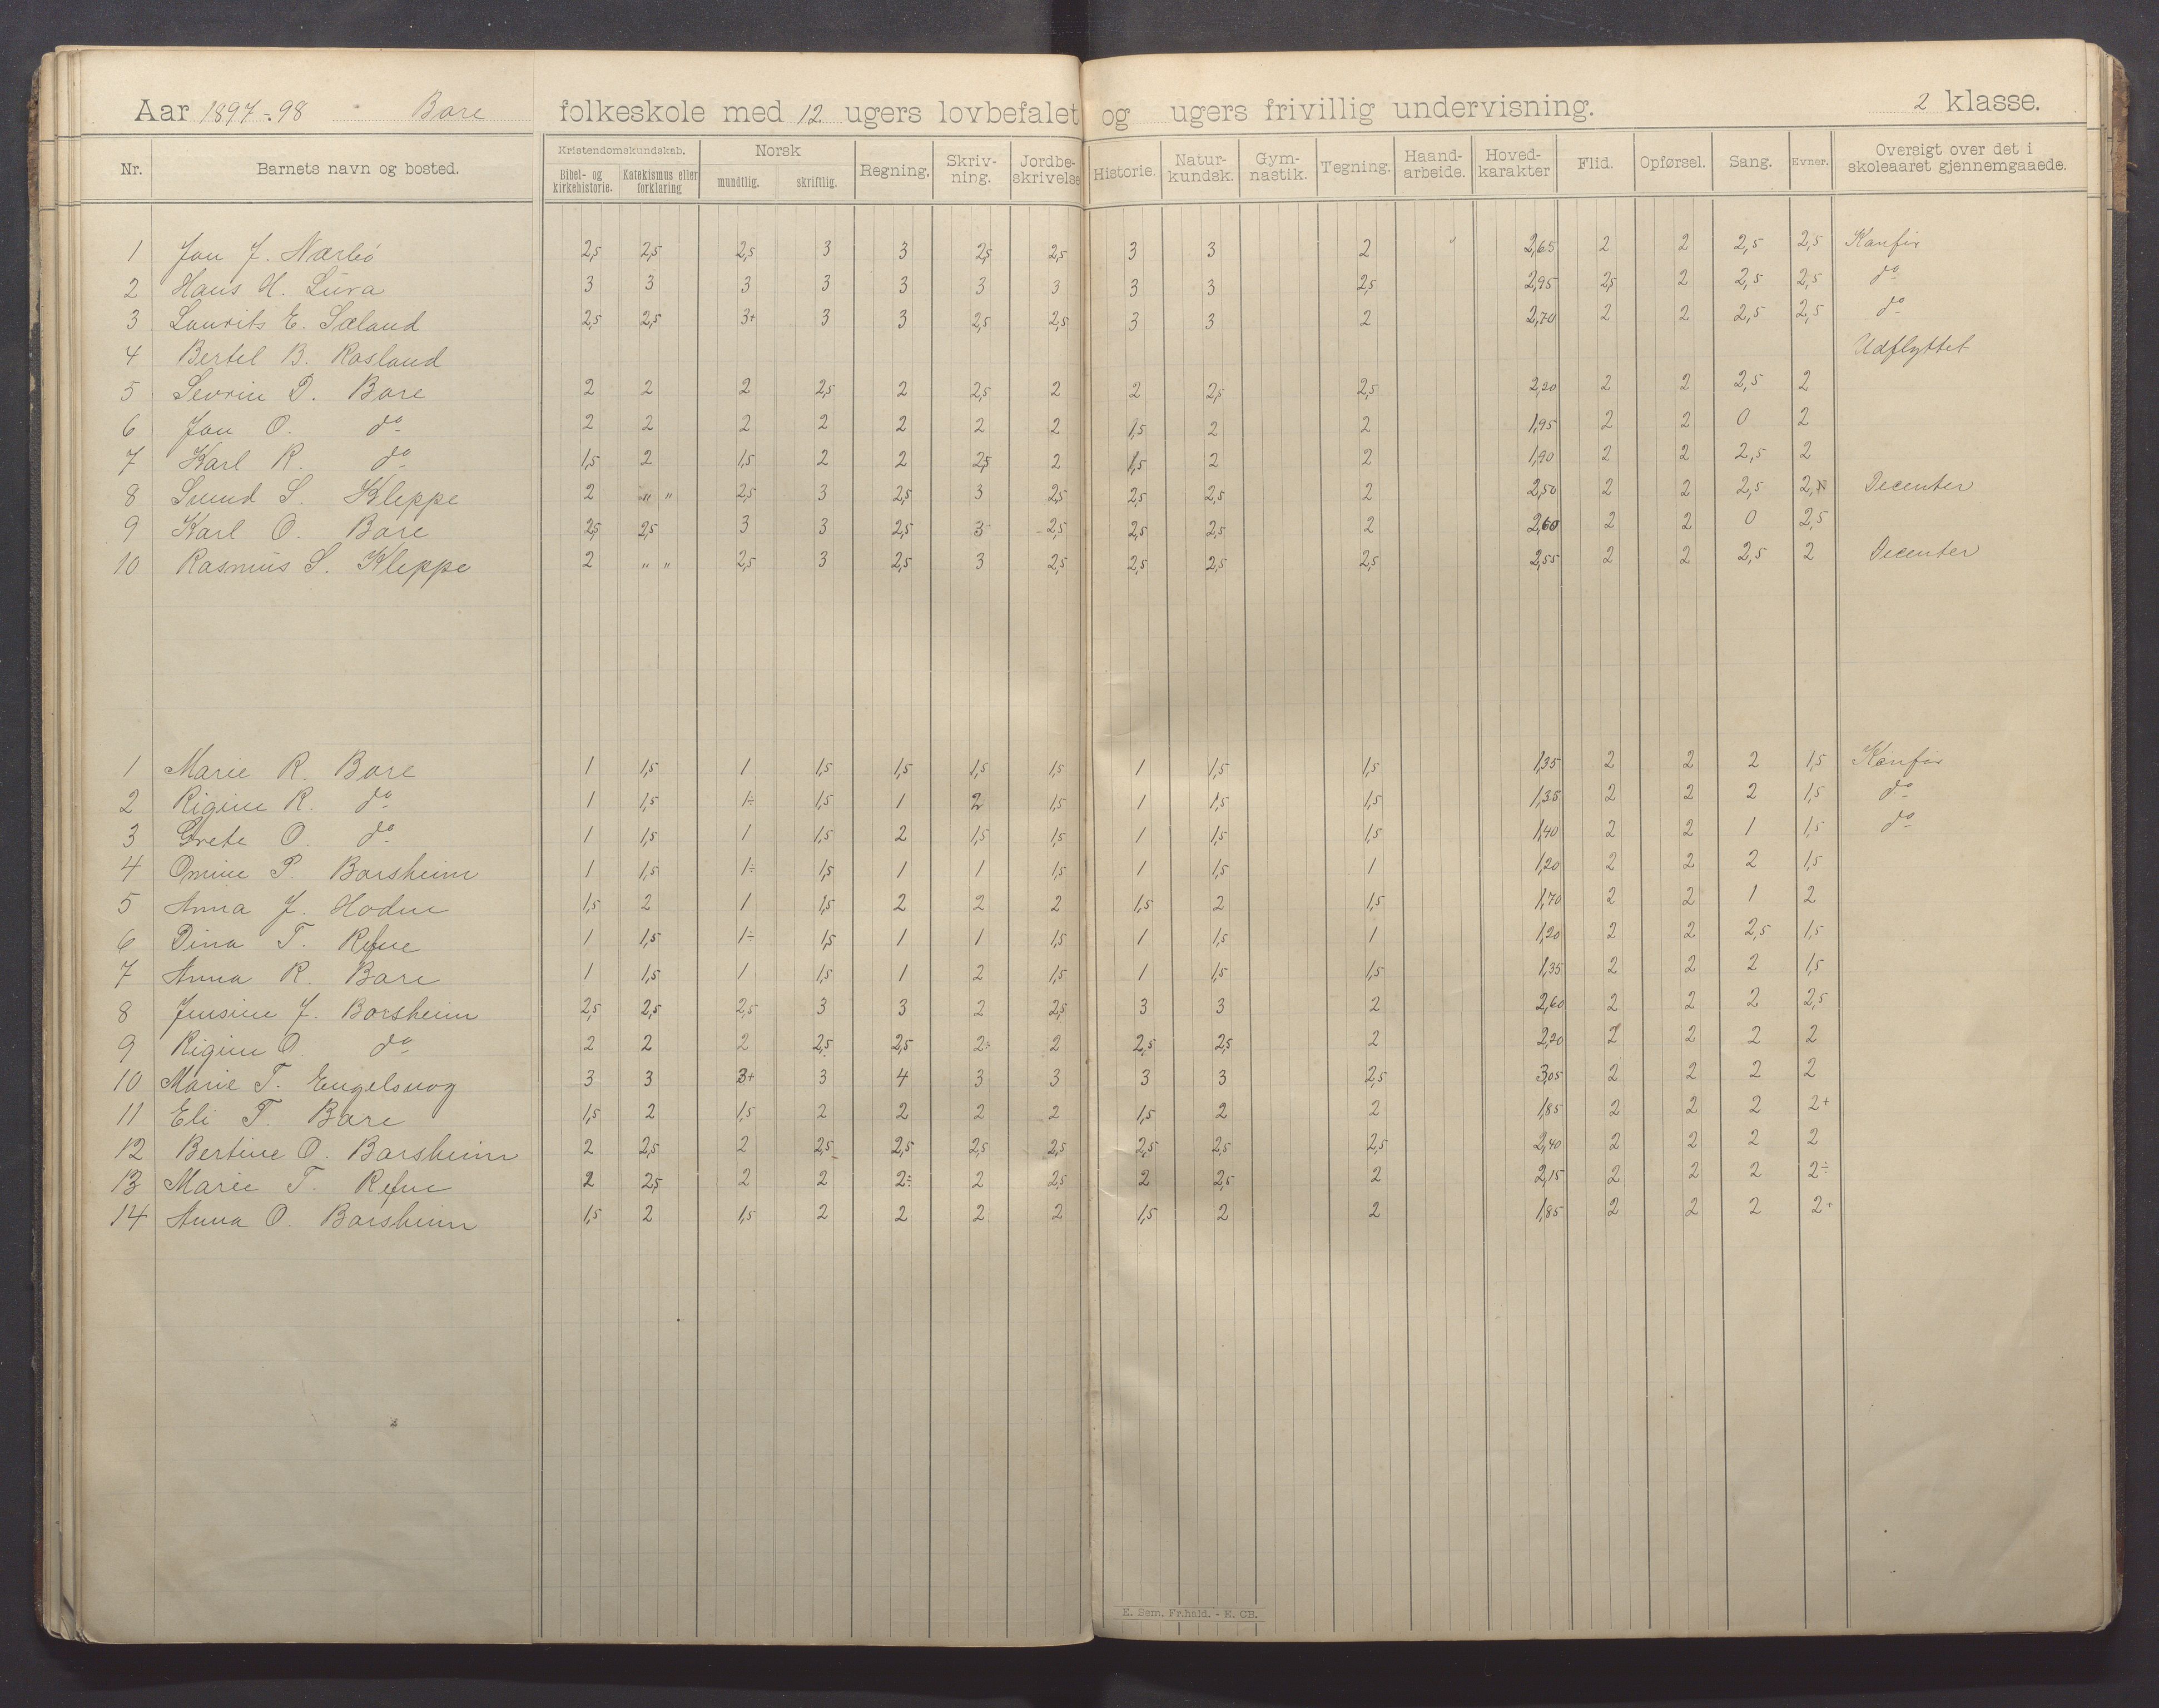 Aar 1897-98 Bore folkeskole med 12 ugers lovbefalet og ugers frivillig undervisning. 2 klasse.
Nr. Barnets navn og bosted. Kristendomskundskab. Bibel- og kirkehistorie. Katekismus eller forklaring Norsk mundtlig. skriftlig. Regning. Skriv-ning. Jordbe-skrivelse Historie. Natur-kundsk. Gym-nastik. Tegning. Haand-arbeide. Hoved-karakter Flid. Opførsel. Sang. Evner. Oversigt over det i skoleaaret gjennemgaaede.
1 Jon J. Nærbö 2,5 2,5 2,5 3 3 2,5 2,5 3 3 2 " 2,65 2 2 2,5 2,5 Konfir
2 Hans H. Lura 3 3 3 3 3 3 3 3 3 2,5 2,95 2,5 2 2,5 2,5 do
3 Laurits E. Sæland 2,5 2,5 3+ 3 3 2,5 2,5 3 3 2 2,70 2 2 2,5 2,5 do
4 Bertel B. Rosland Udflyttet
5 Sevrin D. Bore 2 2 2 2,5 2 2,5 2 2 2,5 2,5 2,20 2 2 2,5 2
6 Jon O. do 2 2 2 2 2 2 2 1,5 2 2 1,95 2 2 0 2
7 Karl R. do 1,5 2 1,5 2 2 2,5 2 1,5 2 2 1,90 2 2 2,5 2
8 Svend S. Kleppe 2 " " 2,5 3 2,5 3 2,5 2,5 2,5 2 2,50 2 2 2,5 2, Decenter
9 Karl O. Bore 2,5 2,5 3 3 2,5 3 2,5 2,5 2,5 2 2,60 2 2 0 2,5
10 Rasmus S. Kleppe 2 " " 2,5 3 2,5 3 2,5 2,5 2,5 2,5 2,55 2 2 2,5 2 Decenter
1 Marie R. Bore 1 1,5 1 1,5 1,5 1,5 1,5 1 1,5 1,5 1,35 2 2 2 1,5 Konfir
2 Rigine R. do 1 1,5 1÷ 1,5 1 2 1,5 1 1,5 1,5 1,35 2 2 2 1,5 do
3 Grete O. do 1 1,5 1 1,5 2 1,5 1,5 1 1,5 1,5 1,40 2 2 1 1,5 do
4 Omine P. Borsheim 1 1,5 1÷ 1,5 1 1 1,5 1 1,5 1 1,20 2 2 2 1,5
5 Anna J. Hodne 1,5 2 1 1,5 2 2 2 1,5 2 1,5 1,70 2 2 1 2
6 Dina T. Refne 1 1,5 1÷ 1,5 1 1 1,5 1 1,5 1 1,20 2 2 2,5 1,5
7 Anna R. Bore 1 1,5 1 1,5 1 2 1,5 1 1,5 1,5 1,35 2 2 2 1,5
8 Jensine J. Borsheim 2,5 2,5 2,5 3 3 2 2,5 3 3 2 2,60 2 2 2 2,5
9 Rigine O. do 2 2 2 2,5 2,5 2÷ 2 2,5 2,5 2 2,20 2 2 2 2
10 Marie T. Engelsvog 3 3 3+ 3 4 3 3 3 3 2,5 3,05 2 2 2 2
11 Eli T. Bore 1,5 2 1,5 2 2 2 2 1,5 2 2 1,85 2 2 2 2+
12 Bertine O. Borsheim 2 2,5 2 2,5 2,5 2,5 2,5 2,5 2,5 2,5 2,40 2 2 2 2
13 Marie T. Refne 2 2,5 2 2 2÷ 2 2,5 2 2,5 2 2,15 2 2 2 2÷
14 Anna O. Borsheim 1,5 2 1,5 2 2 2 2 1,5 2 2 1,85 2 2 2 2+
E. Sem, Fr.hald. - E. CB.